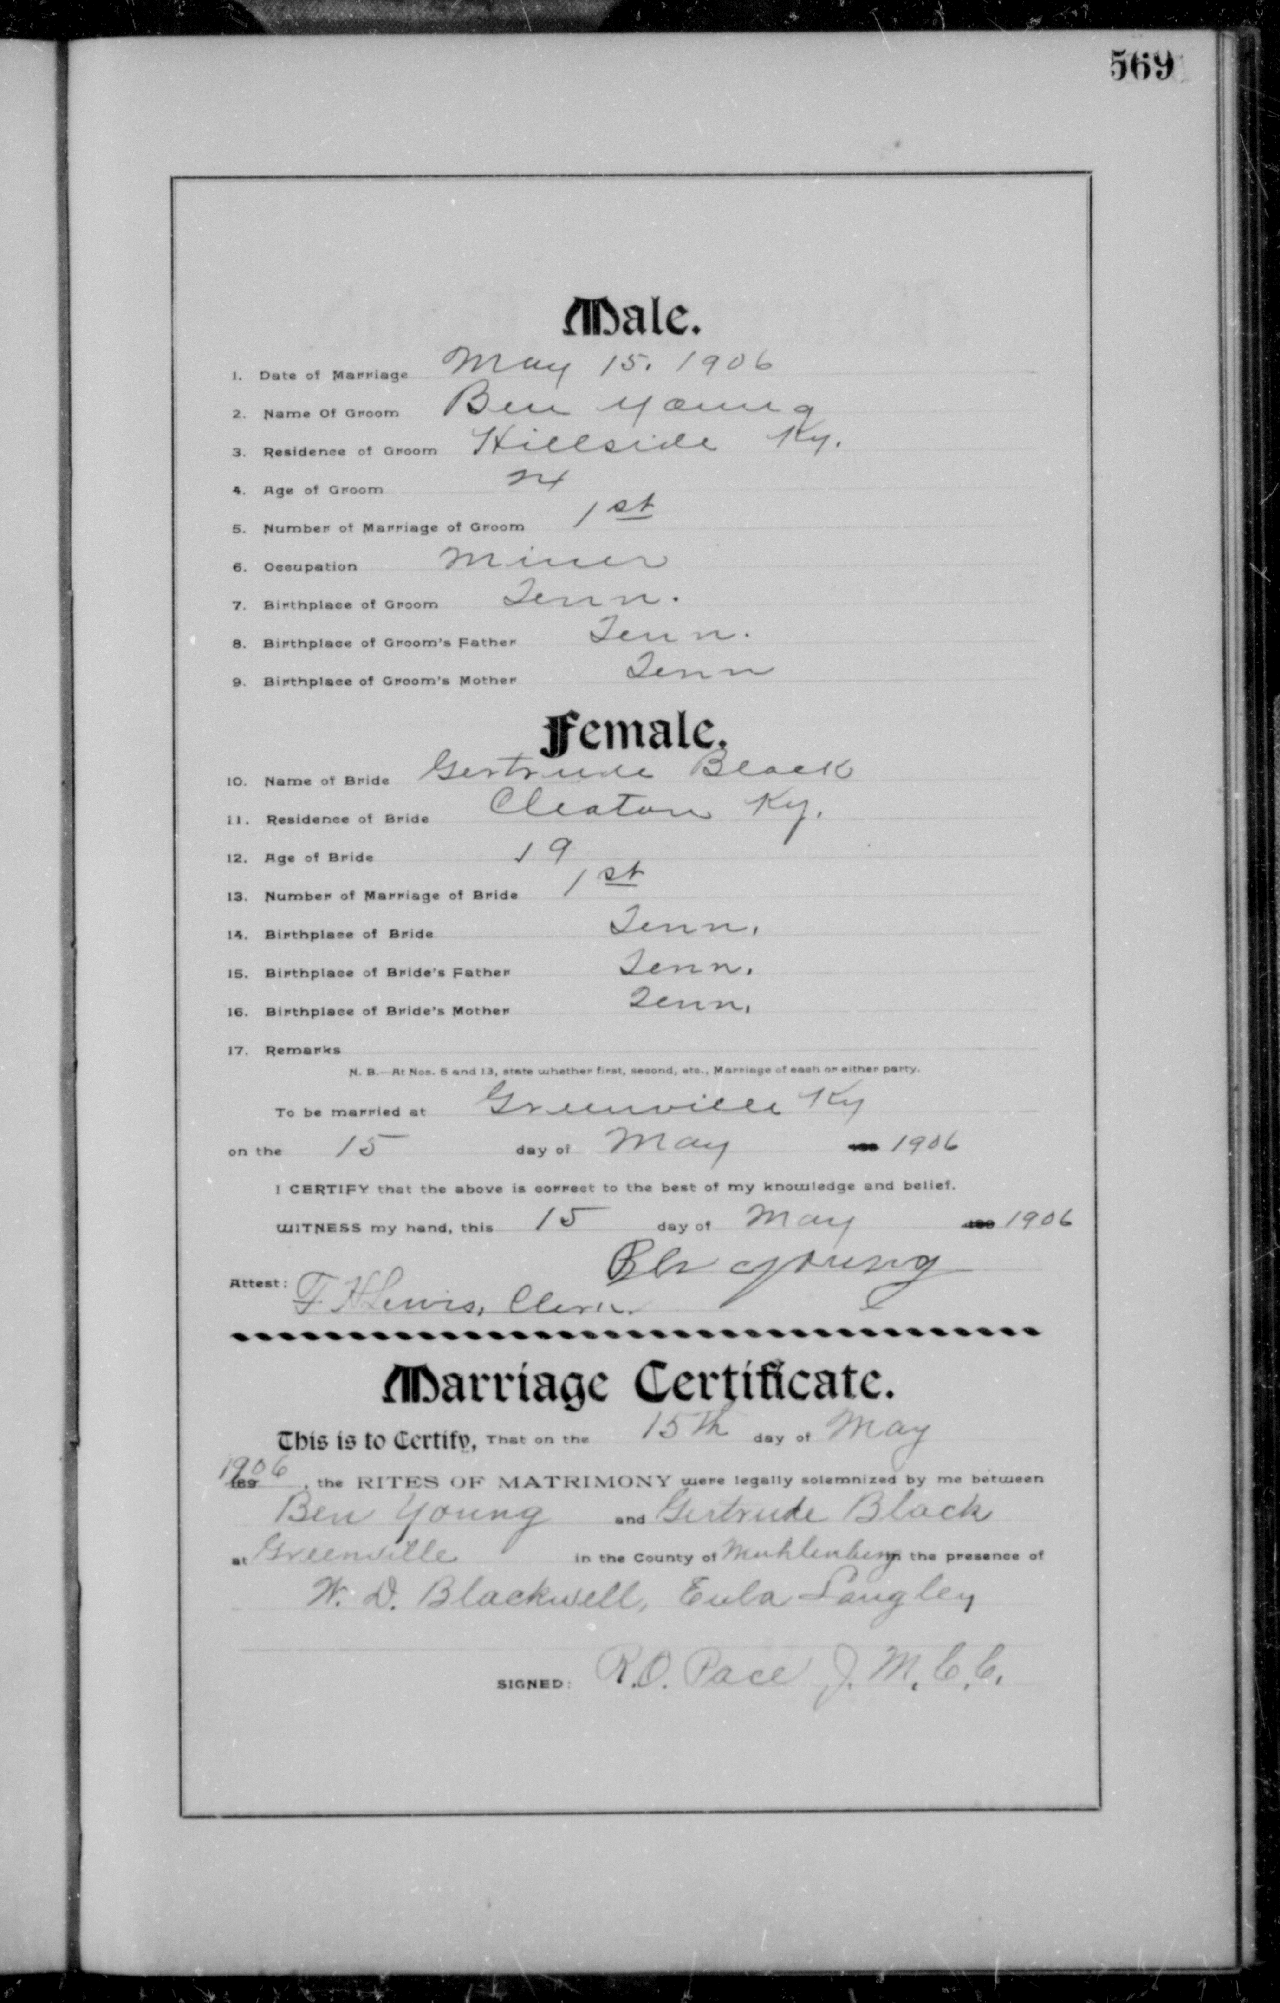 569
Male.
1. Date of Marriage May 15. 1906
2. Name Of Groom Ben Young
3. Residence of Groom Hillside Ky.
4. Age of Groom 24
5. Number of Marriage of Groom 1st
6. Occupation Miner
7. Birthplace of Groom Tenn.
8. Birthplace of Groom's Father Tenn.
9. Birthplace of Groom's Mother Tenn
Female.
10. Name of Bride Gertrude Black
11. Residence of Bride Cleaton Ky.
12. Age of Bride 19
13. Number of Marriage of Bride 1st
14. Birthplace of Bride Tenn.
15. Birthplace of Bride's Father Tenn.
16. Birthplace of Bride's Mother Tenn.
17. Remarks
N. B.—At Nos. 5 and 13, state whether first, second, etc., Marriage of each or either party.
To be married at Greenville Ky
on the 15 day of May 1906
I CERTIFY that the above is correct to the best of my knowledge and belief.
WITNESS my hand, this 15 day of May 1906
Ben Young
Attest: F. H Lewis, Clerk.
Marriage Certificate.
This is to Certify, That on the 15th day of May
1906 189 , the RITES OF MATRIMONY were legally solemnized by me between
Ben Young and Gertrude Black
at Greenville in the County of Muhlenberg in the presence of
W. D. Blackwell, Eula Langley
SIGNED: R. O. Pace J. M. C. C.